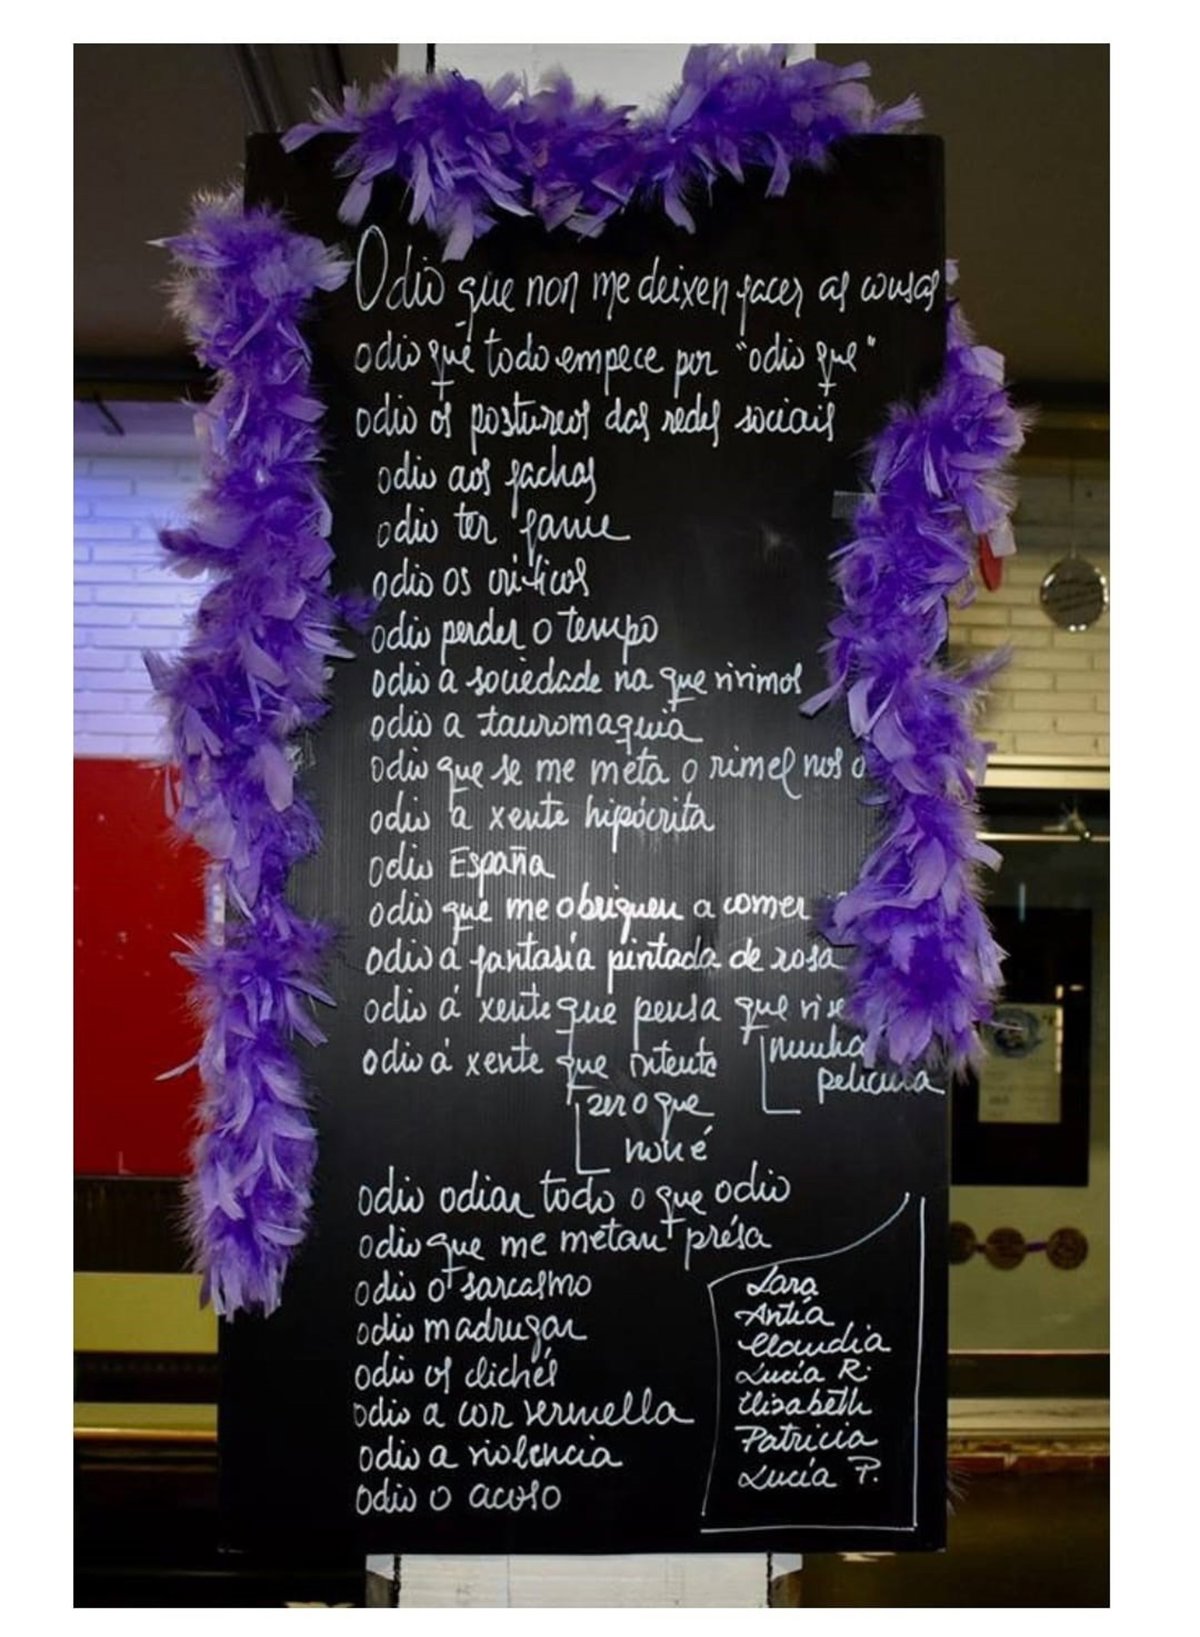 Odio que non me deixen facer as cousas
odio que todo empece por "odio que"
odio os postureos das redes sociais
odio aos fachas
odio ter fame
odio os críticos
odio perder o tempo
odio a sociedade na que vivimos
odio a tauromaquia
odio que se me meta o rimel nos o
odio á xente hipócrita
odio España
odio que me obriguen a comer
odio a fantasía pintada de rosa
odio á xente que pensa que vive
nunha
película
odio á xente que intente
zer o que
non é
odio odiar todo o que odio
odio que me metan présa
odio o sarcasmo
odio madrugar
odio os clichés
odio a cor vermella
odio a violencia
odio o acoso
Lara
Antía
Claudia
Lucía R.
Elisabeth
Patricia
Lucía P.